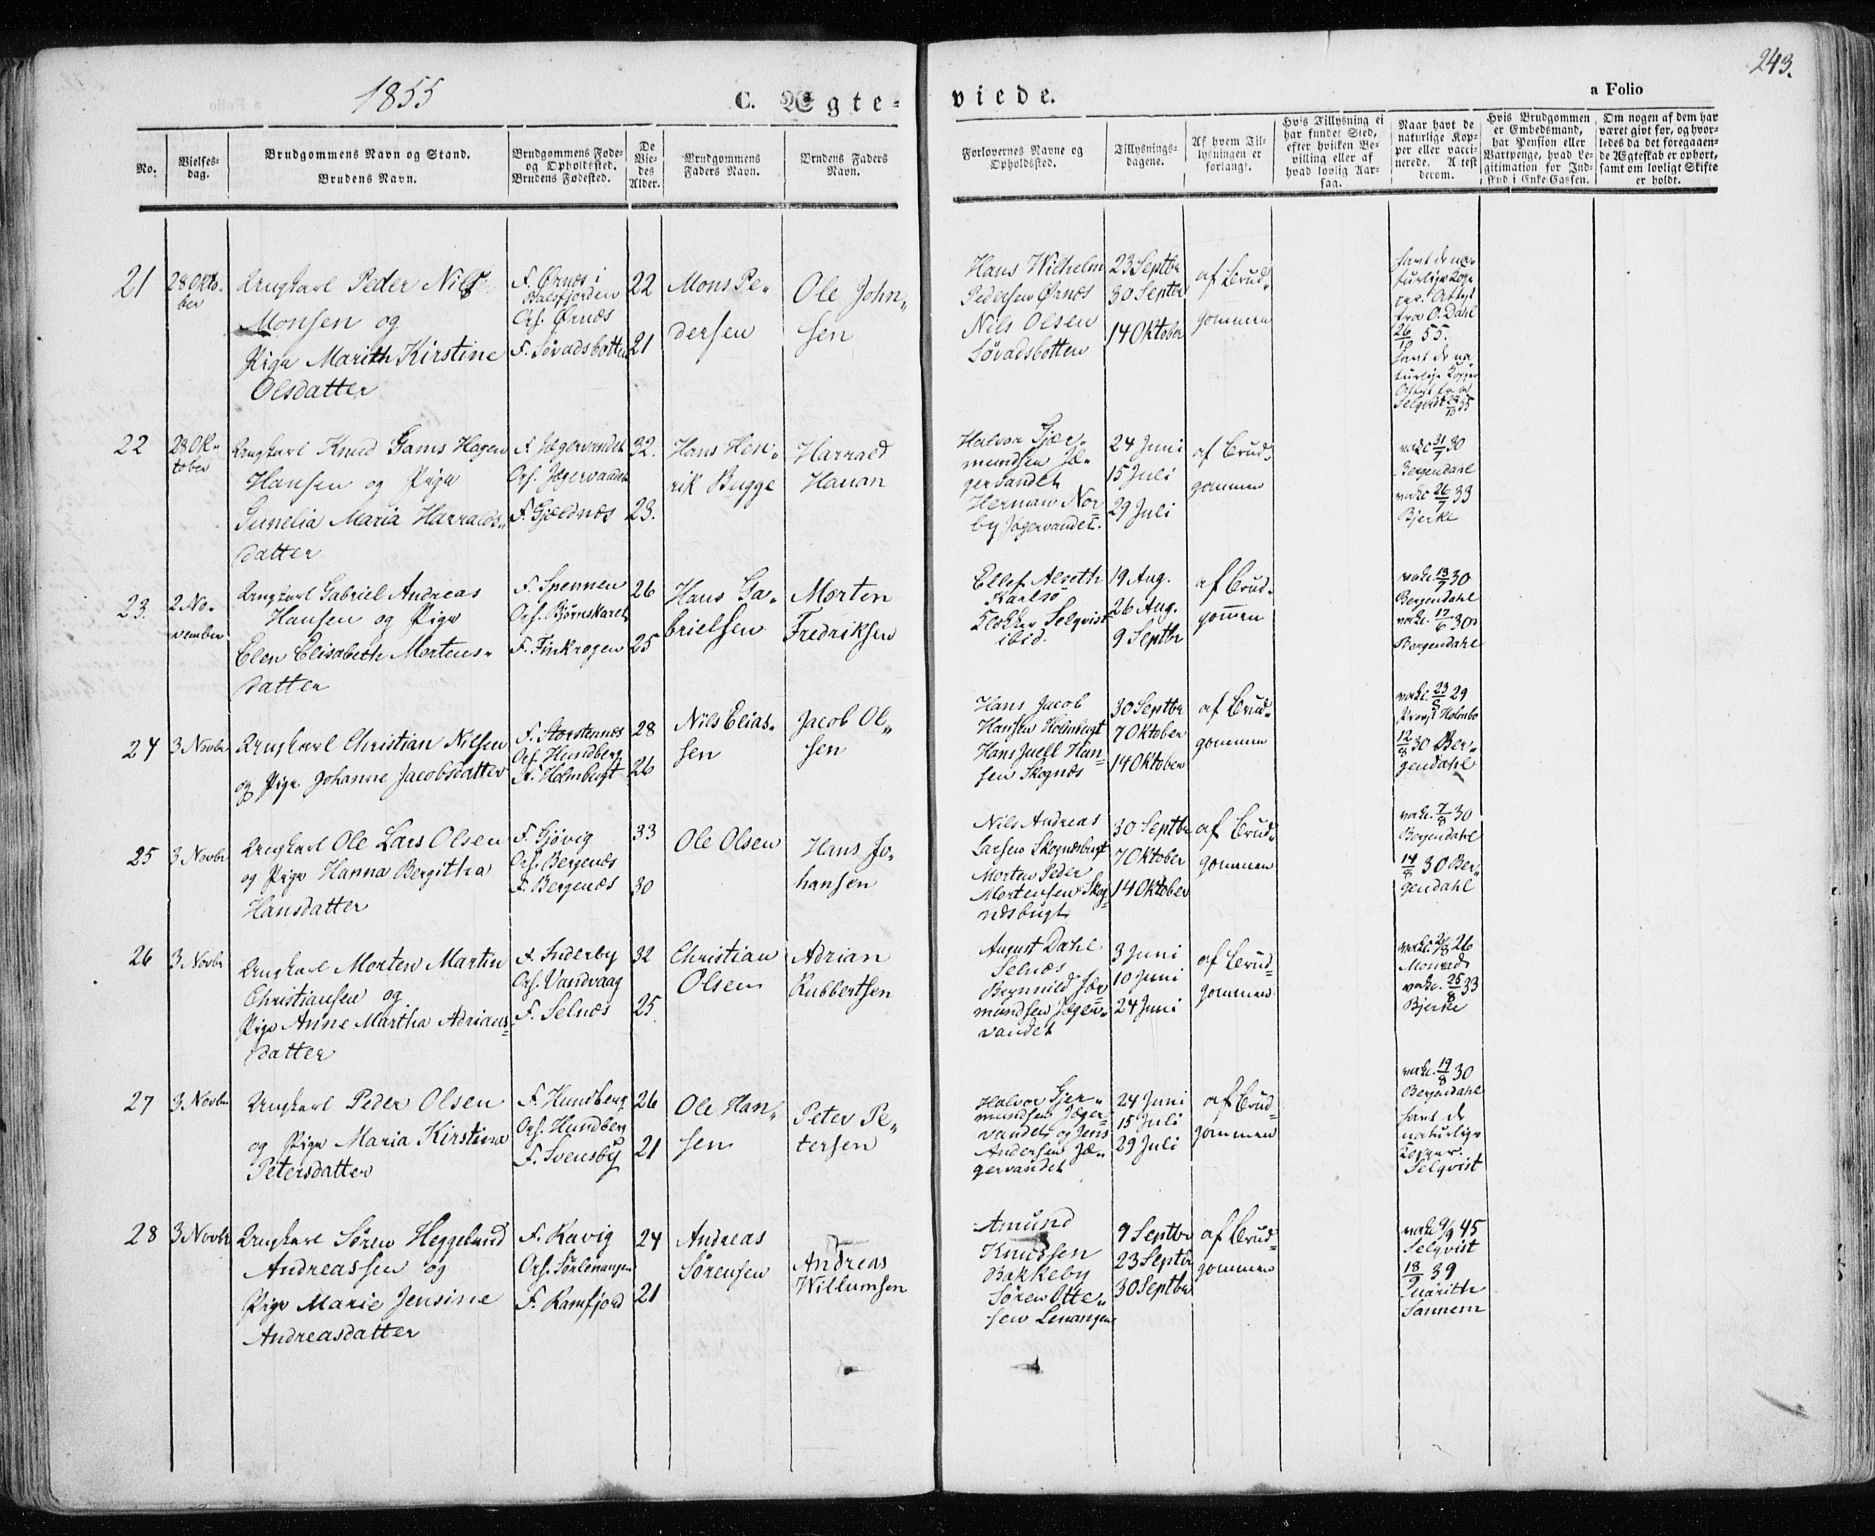 1855
C. Ægte-
viede.
a Folio
243.
No.
Vielses-
dag.
Brudgommens Navn og Stand.
Brudens Navn.
Brudgommens Føde-
og Opholdsted.
Brudens Fødested.
De
Vie-
des
Alder.
Brudgommens
Faders Navn.
Brudens Faders
Navn.
Forlovernes Navne og
Opholdssted.
Tillysnings-
dagene.
Af hvem Til-
lysningen er
forlangt.
Hvis Tillysning ei
har fundet Sted,
efter hvilken Be-
villing eller af
hvad lovlig Aar-
sag.
Naar havt de
naturlige Kop-
per eller vacci-
nerede. Attest
derom.
Hvis Brudgommen
er Embedsmand,
har Pension eller
Vartpenge, hvad Le-
gitimation for Ind-
skud i Enke-Cassen.
Om nogen af dem har
været givt før, og hvor-
ledes da det foregaaen-
de Ægteskab er ophørt,
samt om lovligt Skifte
er holdt.
21
28 Okto-
ber
Ungkarl Peder Nils
Monsen og
Pige Marith Kirstine
Olsdatter
F. Ørnæs i
Balsfjorden
Ops. Ørnæs
F. Søvadsbotten
22
21
Mons Pe-
dersen
Ole John-
sen
Hans Wilhelm
Pedersen Ørnæs
Nils Olsen
Søvadsbotten
23 Septbr
30 Septbr
14 Oktober
af Brud-
gommen
havt de na-
turlige Kop-
per. Attest
fra O. Dahl
26/10 55.
havt de na-
turlige Kopper
Attest fra
Selqvist 28/10 55
22
28 Ok-
tober
Ungkarl Knud Gams Hagen
Hansen og Pige
Sumelia Maria Harralds-
datter
F. Jægervandet
Ops. Jægervandet
F. Gjældnæs
32.
23.
Hans Hen-
rik Bugge
Harrald
Hanan
Halvor Gjær-
mundsen Jæ-
gervandet
Herman Nor-
by Jægervandet.
24 Juni
15 Juli
29 Juli
af Brud-
gommen
vacc 31/7 30
Bergendahl
vacc 26/7 33
Bjerke
23.
2 No-
vember
Ungkarl Gabriel Andreas
Hansen og Pige
Elen Elisabeth Mortens-
datter
F. Spennen
Ops. Bjørnskaret
F. Finkrogen
26
25
Hans Ga-
brielsen
Morten
Fredriksen
Ellef Alseth
Karlsø
Klokker Selqvist
ibid.
19 Aug.
26 Aug.
9 Septbr
af Brud-
gommen
vacc. 13/7 30
Bergendahl
vacc. 17/6 30
Bergendahl
24
3 Novbr
Ungkarl Christian Nilsen
og Pige Johanne Jacobsdatter
F. Storstennes
Ops. Hundberg
F. Holmbugt
28
26
Nils Elias-
sen
Jacob Ol-
sen
Hans Jacob
Hansen Holmbugt
Hans Juell Han-
sen Skognæs
30 Septbr
7 Oktober
14 Oktober
af Brud-
gommen
vacc. 23/8 29
Provst Holmbo
12/8 30 Ber-
gendahl
25
3 Novbr
Ungkarl Ole Lars Olsen
og Pige Hanna Bergitha
Hansdatter
F. Gjövig
Ops. Bergenæs
F. Bergenæs
33
30
Ole Olsen
Hans Jo-
hansen
Nils Andreas
Larsen Skognæsbugt
Morten Peder
Mortensen Skog-
næsbugt
30 Septbr
7 Oktober
14 Oktober
af Brud-
gommen
vacc. 7/8 30
Bergendahl
14/8 30 Ber-
gendahl
26
3 Novbr
Ungkarl Morten Martin
Christiansen og
Pige Anne Martha Adrians-
datter
F. Inderby
Ops. Vandvaag
F. Selnæs
32
25.
Christian
Olsen
Adrian
Kubbertsen
August Dahl
Selnæs
Brynnild Jør-
mundsen Jæger-
vandet
3 Juni
10 Juni
24 Juni
af Brud-
gommen
vacc 2/8 26
Monrad
vacc. 25/8 33
Bjerke
27
3 Novbr
Ungkarl Peder Olsen
og Pige Maria Kirstina
Petersdatter
F. Hundberg
Ops. Hundberg
F. Svensby
26
21
Ole Han-
sen
Peter Pe-
tersen
Halvor Gjer-
mundsen Jæger-
vandet og Jens
Andersen Jæ-
gervandet
24 Juni
15 Juli
29 Juli
af Brud-
gommen
vacc. 19/8 30
Bergendahl
havt de
naturlige
Kopper.
Selqvist
28
3 Novbr
Ungkarl Søren Heggelund
Andreassen og
Pige Marie Jensine
Andreasdatter
F. Kavig
Ops. Sørlenangen
F. Ramfjord
24
21
Andreas
Sørensen
Andreas
Willumsen
Amund
Knudsen
Bakkeby
Søren Otte-
sen Lenangen
9 Septbr
23 Septbr
30 Septbr
af Brud-
gommen
vacc 9/9 45
Selqvist
18/9 39
Sannem